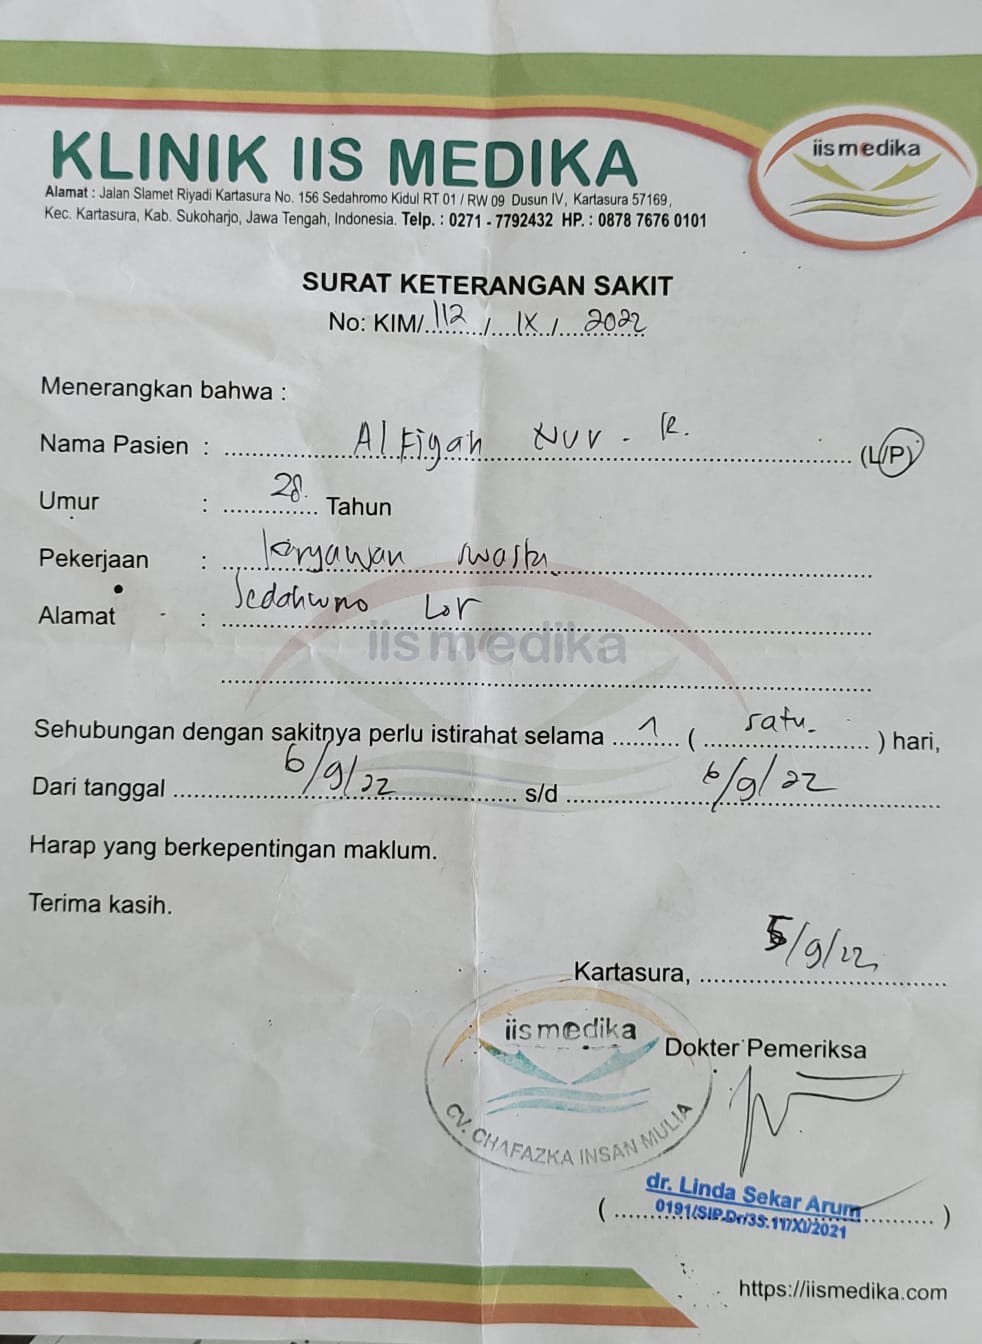 iis medika
KLINIK IIS MEDIKA
Alamat : Jalan Slamet Riyadi Kartasura No. 156 Sedahromo Kidul RT 01 / RW 09 Dusun IV, Kartasura 57169,
Kec. Kartasura, Kab. Sukoharjo, Jawa Tengah, Indonesia. Telp. : 0271 - 7792432 HP. : 0878 7676 0101
SURAT KETERANGAN SAKIT
No: KIM/ 112 / IX / 2022
Menerangkan bahwa :
Nama Pasien : Alfiyah Nur . R. (L/P)
Umur : 28 Tahun
Pekerjaan : karyawan swasta
Alamat : Sedahromo Lor
iis medika
Sehubungan dengan sakitnya perlu istirahat selama 1 ( satu ) hari,
Dari tanggal 6/9/22 s/d 6/9/22
Harap yang berkepentingan maklum.
Terima kasih.
Kartasura, 5/9/22
iis medika
Dokter Pemeriksa
CV. CHAFAZKA INSAN MULIA
( dr. Linda Sekar Arum )
0191/SIP.Dr/33.11/XI/2021
https://iismedika.com